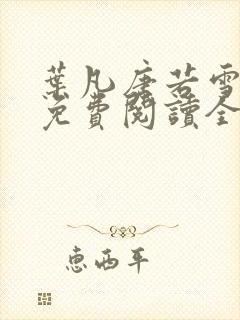 葉凡唐若雪
免費閱讀全
惠西平